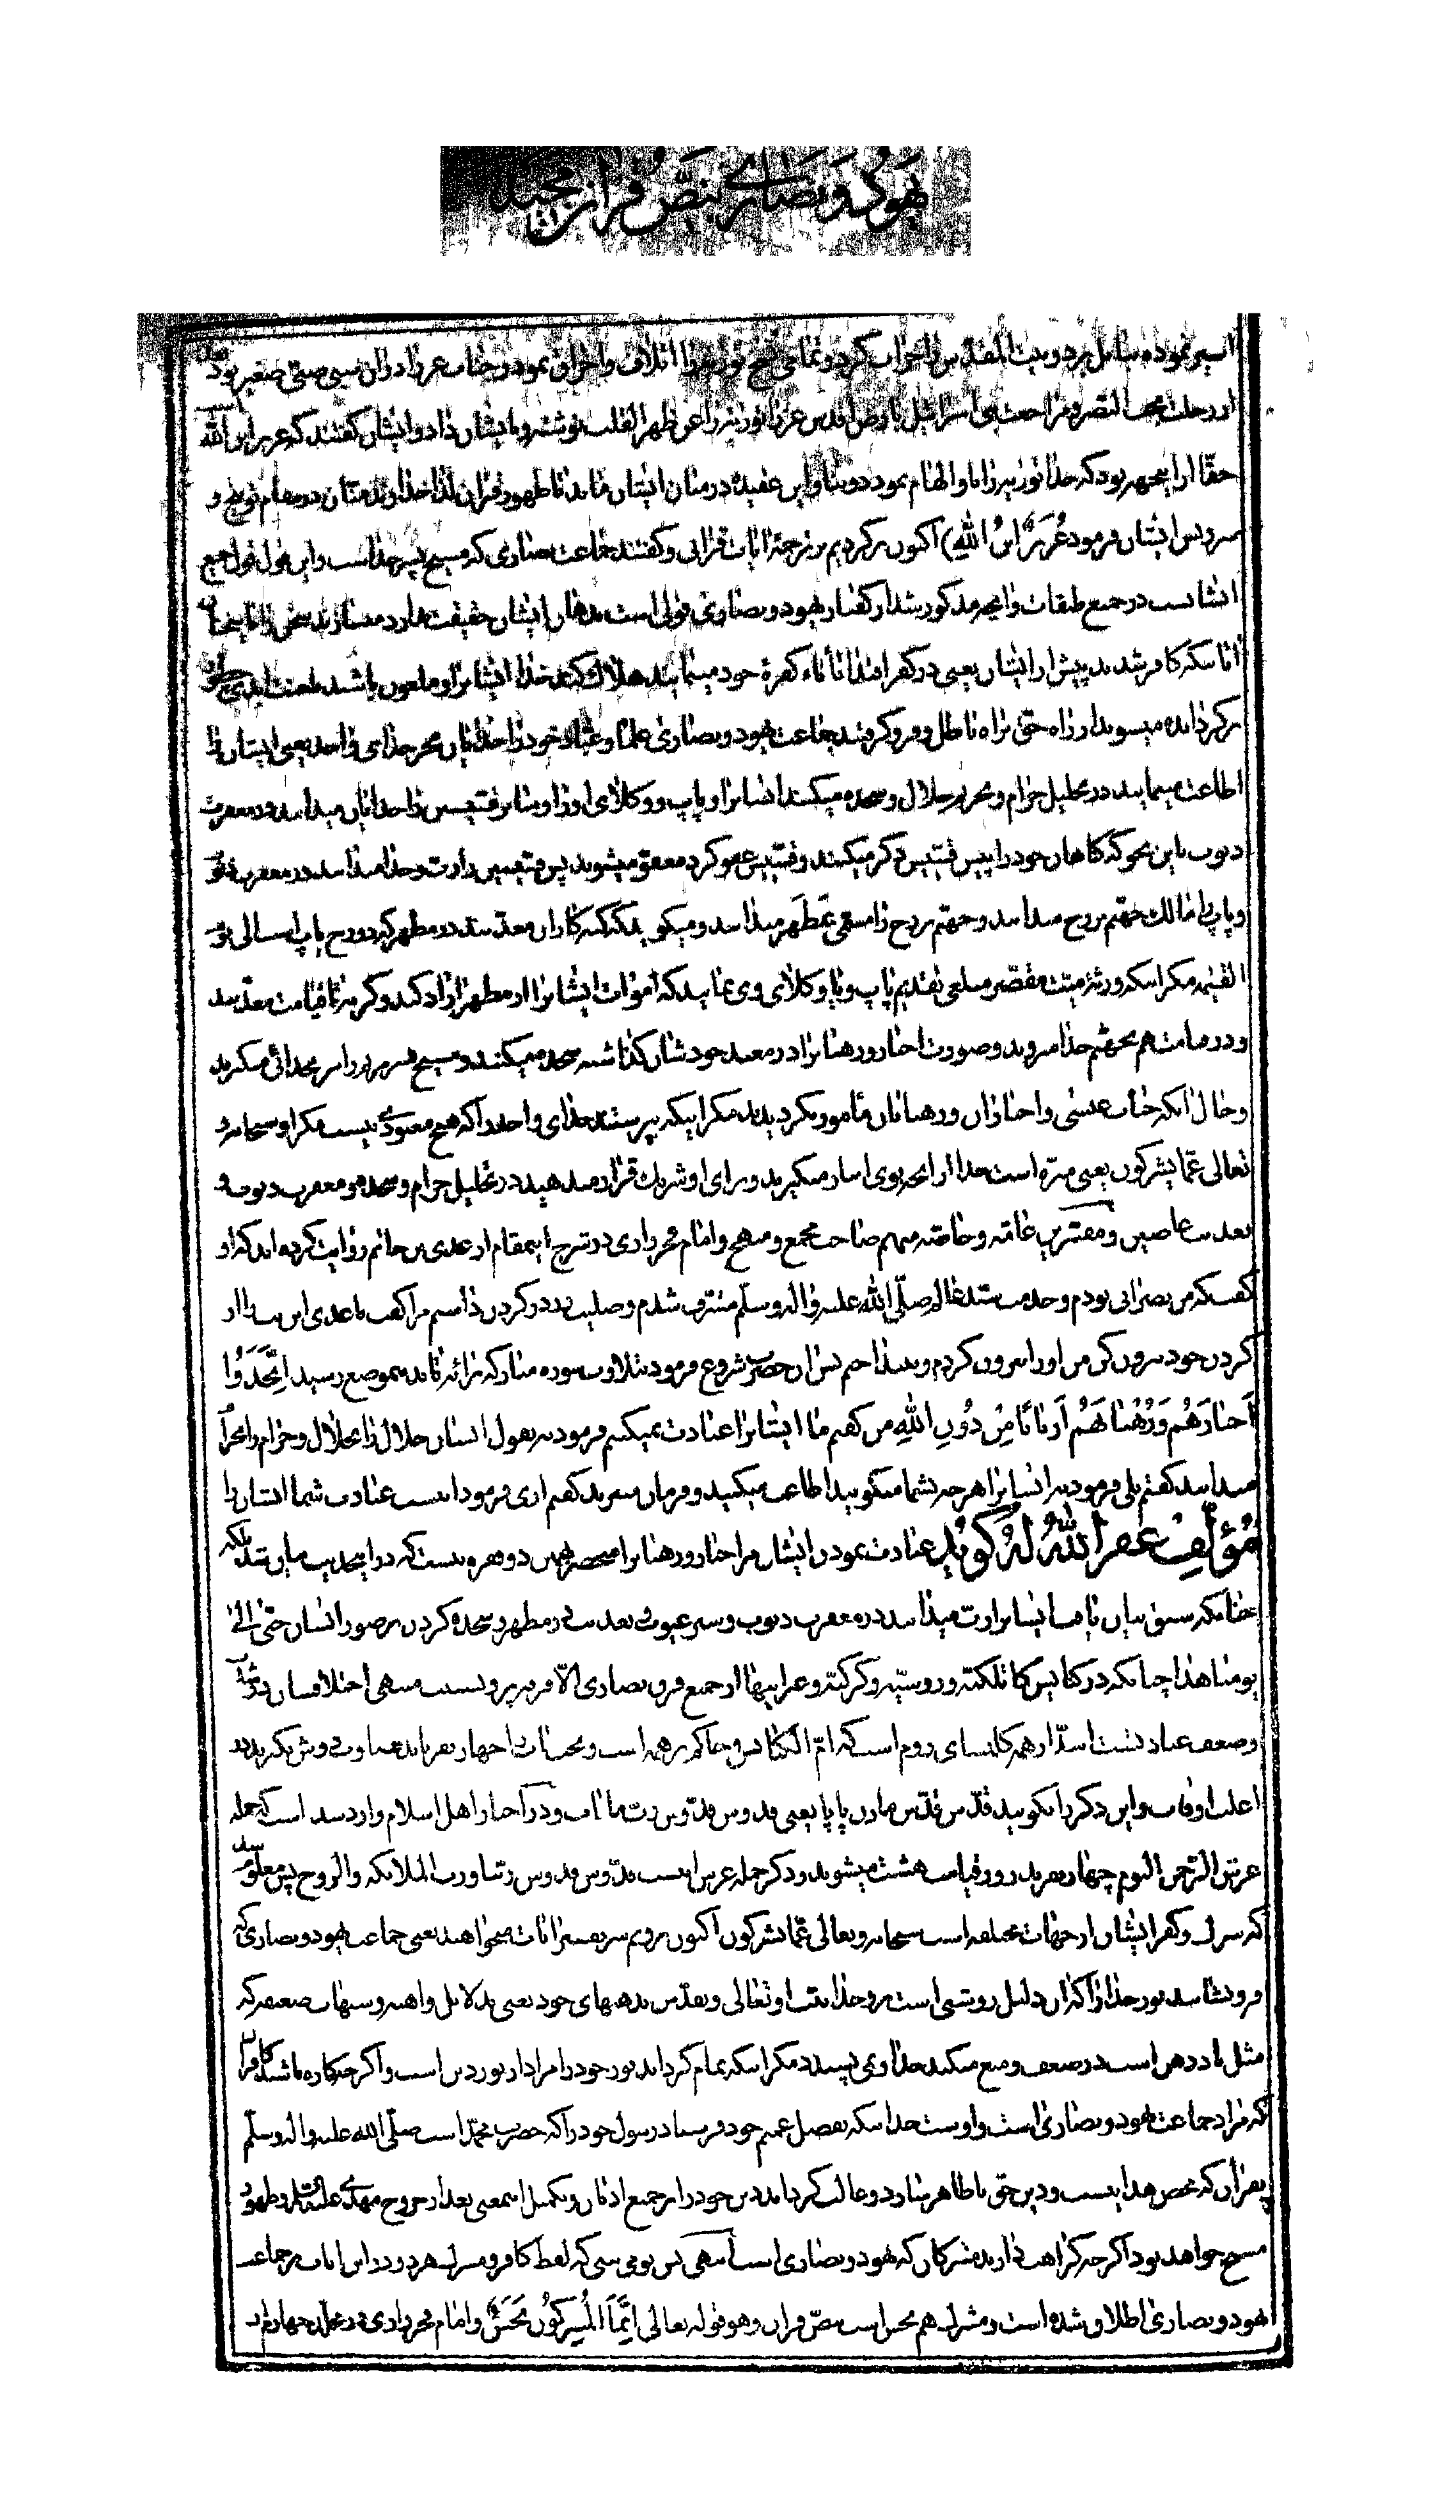 یهود و نصاری بنص قران مجید
اسیر نموده ببابل برد و بیت المقدس را خراب کرد و تمامی نسخ توریة را اتلاف و احراق نمود و جناب عزیر در ان سبی صبی صغیر بود بعد
از رحلت بخت النصر و مراجعت بنی اسرائیل بارض اقدس عزیر توریة را عن ظهر القلب نوشته و بایشان داد و ایشان گفتند که عزیر ابن الله
حقا از اینجهة بود که خدا توریة را باو الهام نمود دوباره و این عقیده در میان ایشان ماند تا ظهور قران لذا خداوند منان در مقام توبیخ و
سرزنش ایشان فرمود عُزَیرٌ ابنُ اللهِ) اکنون برگردیم بترجمهٔ ایات قرانی و گفتند جماعت نصاری که مسیح پسر خداست و این قول قول جمیع
ایشانست در جمیع طبقات و انچه مذکور شد از گفتار یهود و نصاری قولی است بدهان ایشان حقیقت ندارد
انانیکه کافر شدند پیش از ایشان یعنی در کفر اقتدا باباء کفرهٔ خود مینمایند هلاک کند خدا ایشانرا و ملعون باشند بلعنت ابدی
برگردانده میشوند از راه حق براه باطل و فرو گرفتند جماعت یهود و نصاری علما و عباد خود را خدایان بجز خدای واحد یعنی ایشان را
اطاعت مینمایند در تحلیل حرام و تحریم حلال و سجده میکنند ایشانرا و پاپ و وکلای او را و سایر قسیسین را خدایان میدانند در مغفرت
ذنوب باین نحو که گناهان خود را پیش قسیس ذکر میکنند و قسیس عفو کرد معفو میشوند پس قسیسین را رب و خدا میدانند در مغفرت ذنوب
و پاپ را مالک جهنم برزخ میدانند و جهنم برزخ را مسمی بمَطْهَر میدانند و میگویند که گنه کاران معذبند در مطهر که در روح پاپ است الی یوم
القیمه مگر اینکه ورثهٔ میت مقصر مبلغی تقدیم پاپ و یا وکلای وی نمایند که اموات ایشانرا از مطهر ازاد کنند و گرنه تا قیامت معذبند
و در قیامت هم بجهنم خدا میروند و صورت احبار و رهبانرا در معبد خودشان گذاشته سجده میکنند و مسیح پسر مریم را نیز بخدائی میگیرند
و حال انکه جناب عیسی و احباران و رهبانان مامور نگردیدند مگر اینکه بپرستند خدای واحد را که هیچ معبودی نیست مگر او سبحانه و
تعالی عمّا یشرکون یعنی منزه است خدا از انچه بوی انباز میگیرند و برای او شریک قرار میدهند در تحلیل حرام و سجده و مغفرت ذنوب و
تعذیب عاصین و مفسرین عامه و خاصه منهم صاحب مجمع و منهج و امام فخر رازی در شرح اینمقام از عدی بن حاتم روایت کرده اند که او
گفت که من نصرانی بودم و خدمت سید عالم صلّی الله علیه و اله و سلّم مشرف شدم و صلیب در گردن داشتم مرا گفت یا عدی این بت را از
گردن خود بیرون کن من او را بیرون کردم و بینداختم پس ان حضرت شروع فرمود بتلاوت سوره مبارکه برائه تا بدینموضع رسید اتَّخَذُوا
اَحبارَهُم وَرُهبانَهُم اَربابًا مِن دُونِ اللهِ من گفتم ما ایشانرا عبادت نمیکنیم فرمود نه بقول ایشان حلال را حلال و حرام را حرام
میدانید گفتم بلی فرمود نه ایشانرا هر چه بشما میگویند اطاعت میکنید و فرمان میبرید گفتم اری فرمود اینست عبادت شما ایشان را
مُؤلِّفِ غفر اللهُ لهُ گوید عبادت نمودن ایشان مر احبار و رهبانرا منحصر بهمین دو فقره نیست که در این حدیث بیان شد بلکه
چنانکه سبق بیان یافت ایشانرا رب میدانند در مغفرت ذنوب و ستر عیوب و تعذیب در مطهر و سجده کردن بر صور ایشان حتی الی
یومنا هذا چنانکه در کنایس کاتلکیه و روسیه و گرگیه و غیر اینها از جمیع فرق نصاری الا فرقه پروتستنت
و صعب عبادتست اشد از همه کلیسای روم است که ام الکنایس و حاکم بر همه است
اغلب اوقات و این ذکر را میگویند قدس قدس مادن پاپا یعنی قدوس قدوس رب ما اب و در اخبار اهل اسلام وارد شده است که حمله
عرش الرحمن الیوم چهار نفرند روز قیامت هشت میشوند و ذکر حمله عرش اینست قدوس قدوس ربنا و رب الملائکه و الروح پس معلوم شد
که شرک و کفر ایشان از جهات مختلفه است سبحانه و تعالی عما یشرکون اکنون برویم سر تفسیر ایات میخواهند یعنی جماعت یهود و نصاری که
فرو نشانند نور خدا را که ان دلیل روشنی است بر وحدانیت او تعالی و تقدس بدهنهای خود یعنی بدلایل واهیه و شبهات ضعیفه که
مثل باد دهن است در ضعف و منع میکند خداوند نمی پسندد مگر اینکه تمام گرداند نور خود را مراد از نور دین است و اگر چه کاره باشند کافران
که مراد جماعت یهود و نصاری است و اوست خدائیکه بفضل عمیم خود فرستاد رسول خود را که حضرت محمد است صلّی الله علیه و اله و سلّم
بقران که محض هدایتست و دین حق تا ظاهر سازد و غالب گرداند دین خود را بر جمیع ادیان و تکمیل اینمعنی بعد از خروج مهدی علیه السلام و ظهور
مسیح خواهد بود اگر چه کراهت دارند مشرکان که یهود و نصاری است انتهی پس تو می بینی که لفظ کافر و مشرک هر دو در این ایات بر جماعت
یهود و نصاری اطلاق شده است و مشرک هم نجس است بنص قران و هو قوله تعالی اِنَّمَا المُشرِکُونَ نَجَسٌ و امام فخر رازی در مجلد چهارم از